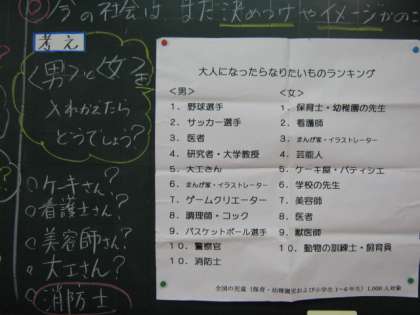 今の社会は、まだ決めつけやイメージが
考え
<男>と<女>を
入れかえたら
どうでしょう?
○ケーキさん?
○看護士さん?
○美容師さん?
○大工さん?
○消防士
大人になったらなりたいものランキング
<男>
1. 野球選手
2. サッカー選手
3. 医者
4. 研究者・大学教授
5. 大工さん
6. まんが家・イラストレーター
7. ゲームクリエーター
8. 調理師・コック
9. バスケットボール選手
10. 警察官
10. 消防士
<女>
1. 保育士・幼稚園の先生
2. 看護師
3. まんが家・イラストレーター
4. 芸能人
5. ケーキ屋・パティシエ
6. 学校の先生
7. 美容師
8. 医者
9. 獣医師
10. 動物の訓練士・飼育員
全国の児童(保育・幼稚園児および小学生1~6年生)1,000人対象